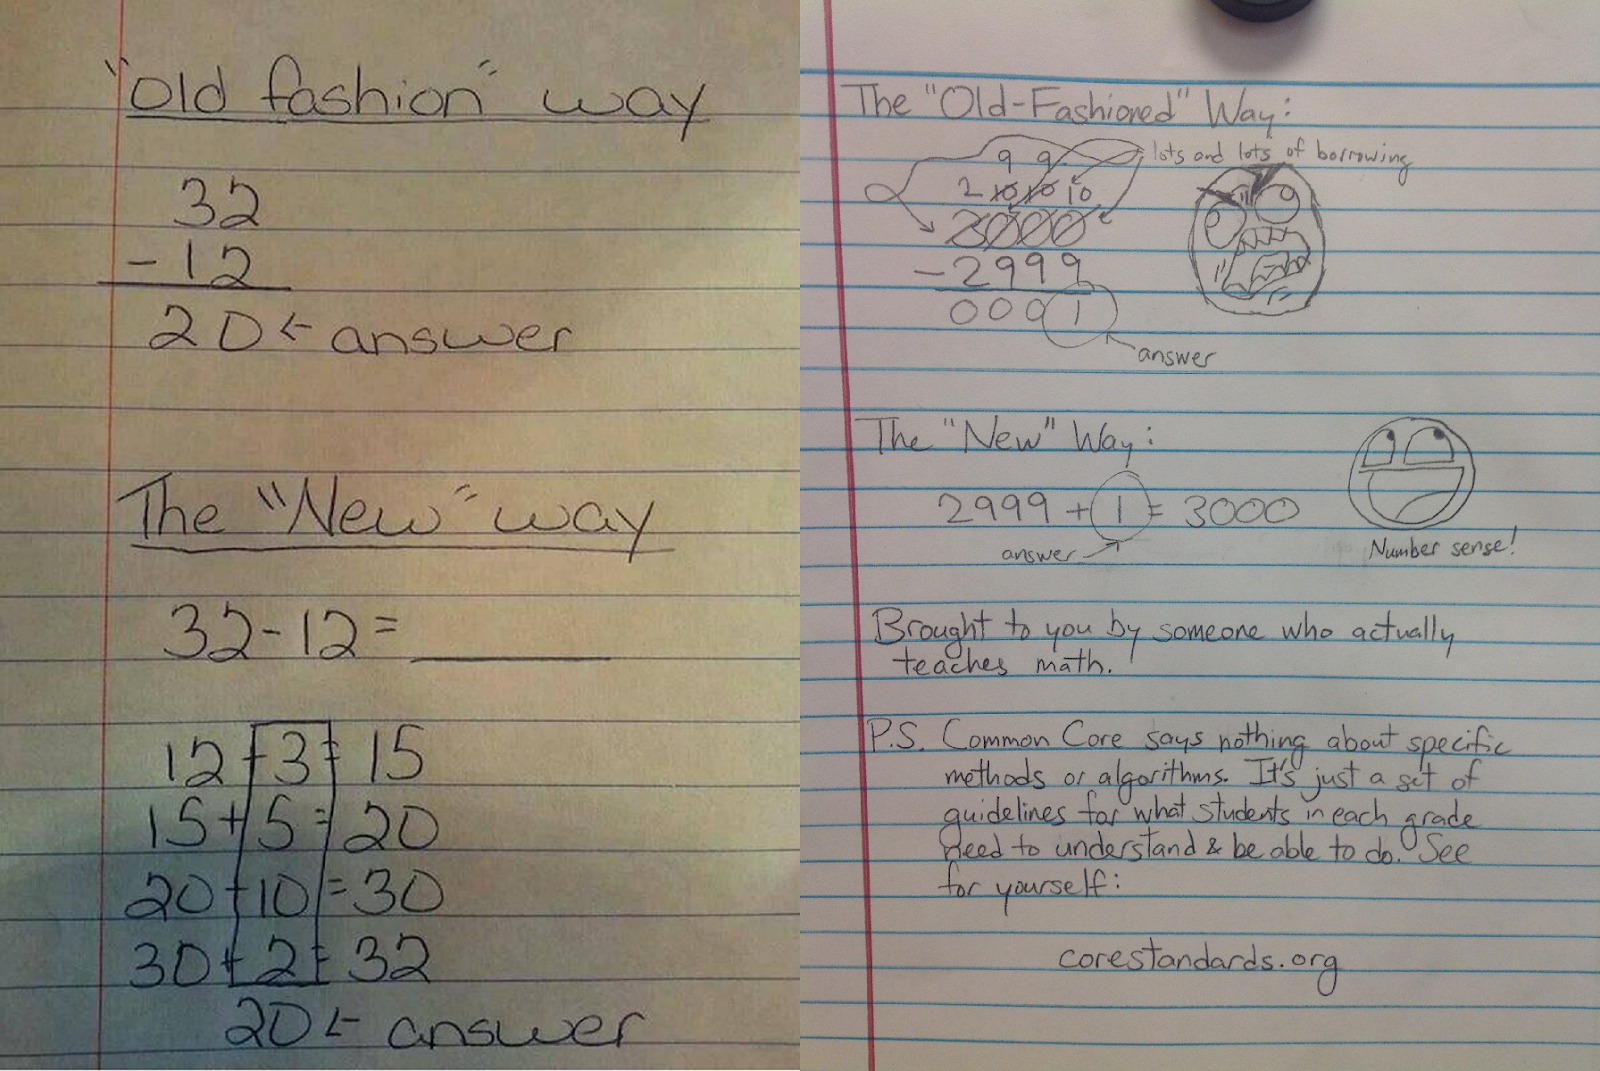 "old fashion" way
32
-12
20 ← answer
The "New" way
32-12= ______
12+3=15
15+5=20
20+10=30
30+2=32
20 ← answer
The "Old-Fashioned" Way:
lots and lots of borrowing
9 9
2 10 10 10
3000
-2999
0001
answer
The "New" Way:
2999 + 1 = 3000
answer
Number sense!
Brought to you by someone who actually
teaches math.
P.S. Common Core says nothing about specific
methods or algorithms. It's just a set of
guidelines for what students in each grade
need to understand & be able to do. See
for yourself:
corestandards.org